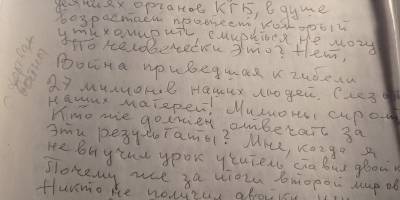 деяниях органов КГБ, в душе
возрастает протест, который
утихомирить, смириться не могу
По человечески это? Нет,
Война приведшая к гибели
27 милионов наших людей. Слез
наших матерей! Милионы сирот
Кто же должен отвечать за
эти результаты? Мне, когда я
не выучил урок учитель ставил двойк
Почему же за итоги второй миров
Никто не получил двойку,